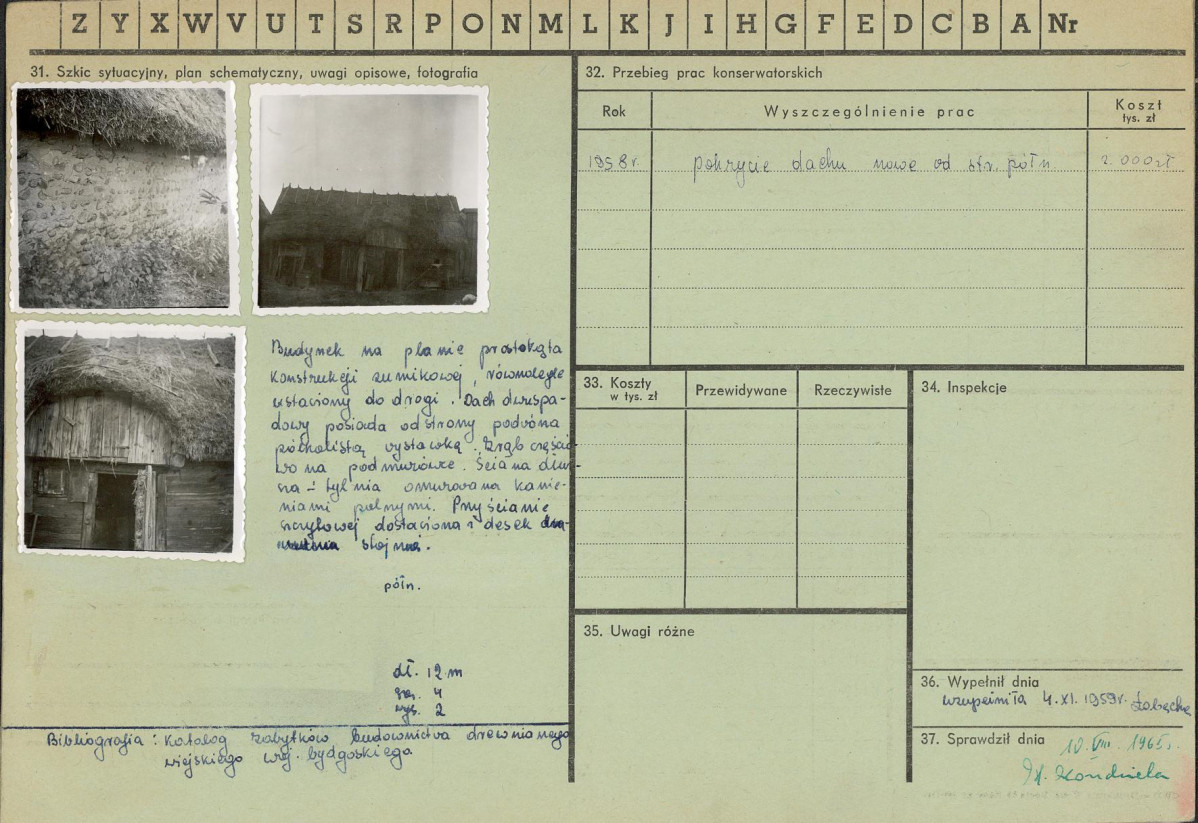 Z Y X W V U T S R P O N M L K J I H G F E D C B A Nr
31. Szkic sytuacyjny, plan schematyczny, uwagi opisowe, fotografia
Budynek na planie prostokąta
konstrukcji sumikowej, równolegle
ustaciony do drogi. Dach dwuspa-
dowy posiada od strony podwóna
półkolistą wystawką. Zrąb częścio-
wo na podmurówce. Ściana dłuż-
sza - tylnia omurowana kamie-
niami polnymi. Przy ścianie
szczytowej dostaciona z desek
stojnia.
półn.
dł. 12 m
szer. 4
wys. 2
Bibliografia: Katalog zabytków budownictwa drewnianego
wiejskiego woj. bydgoskiego
32. Przebieg prac konserwatorskich
Rok Wyszczególnienie prac Koszt
tys. zł
1958 r. pokrycie dachu nowe od str. półn 2.000 zł
33. Koszty
w tys. zł
Przewidywane Rzeczywiste
34. Inspekcje
35. Uwagi różne
36. Wypełnił dnia
4.XI.1959r.
37. Sprawdził dnia
10.VIII.1965r.